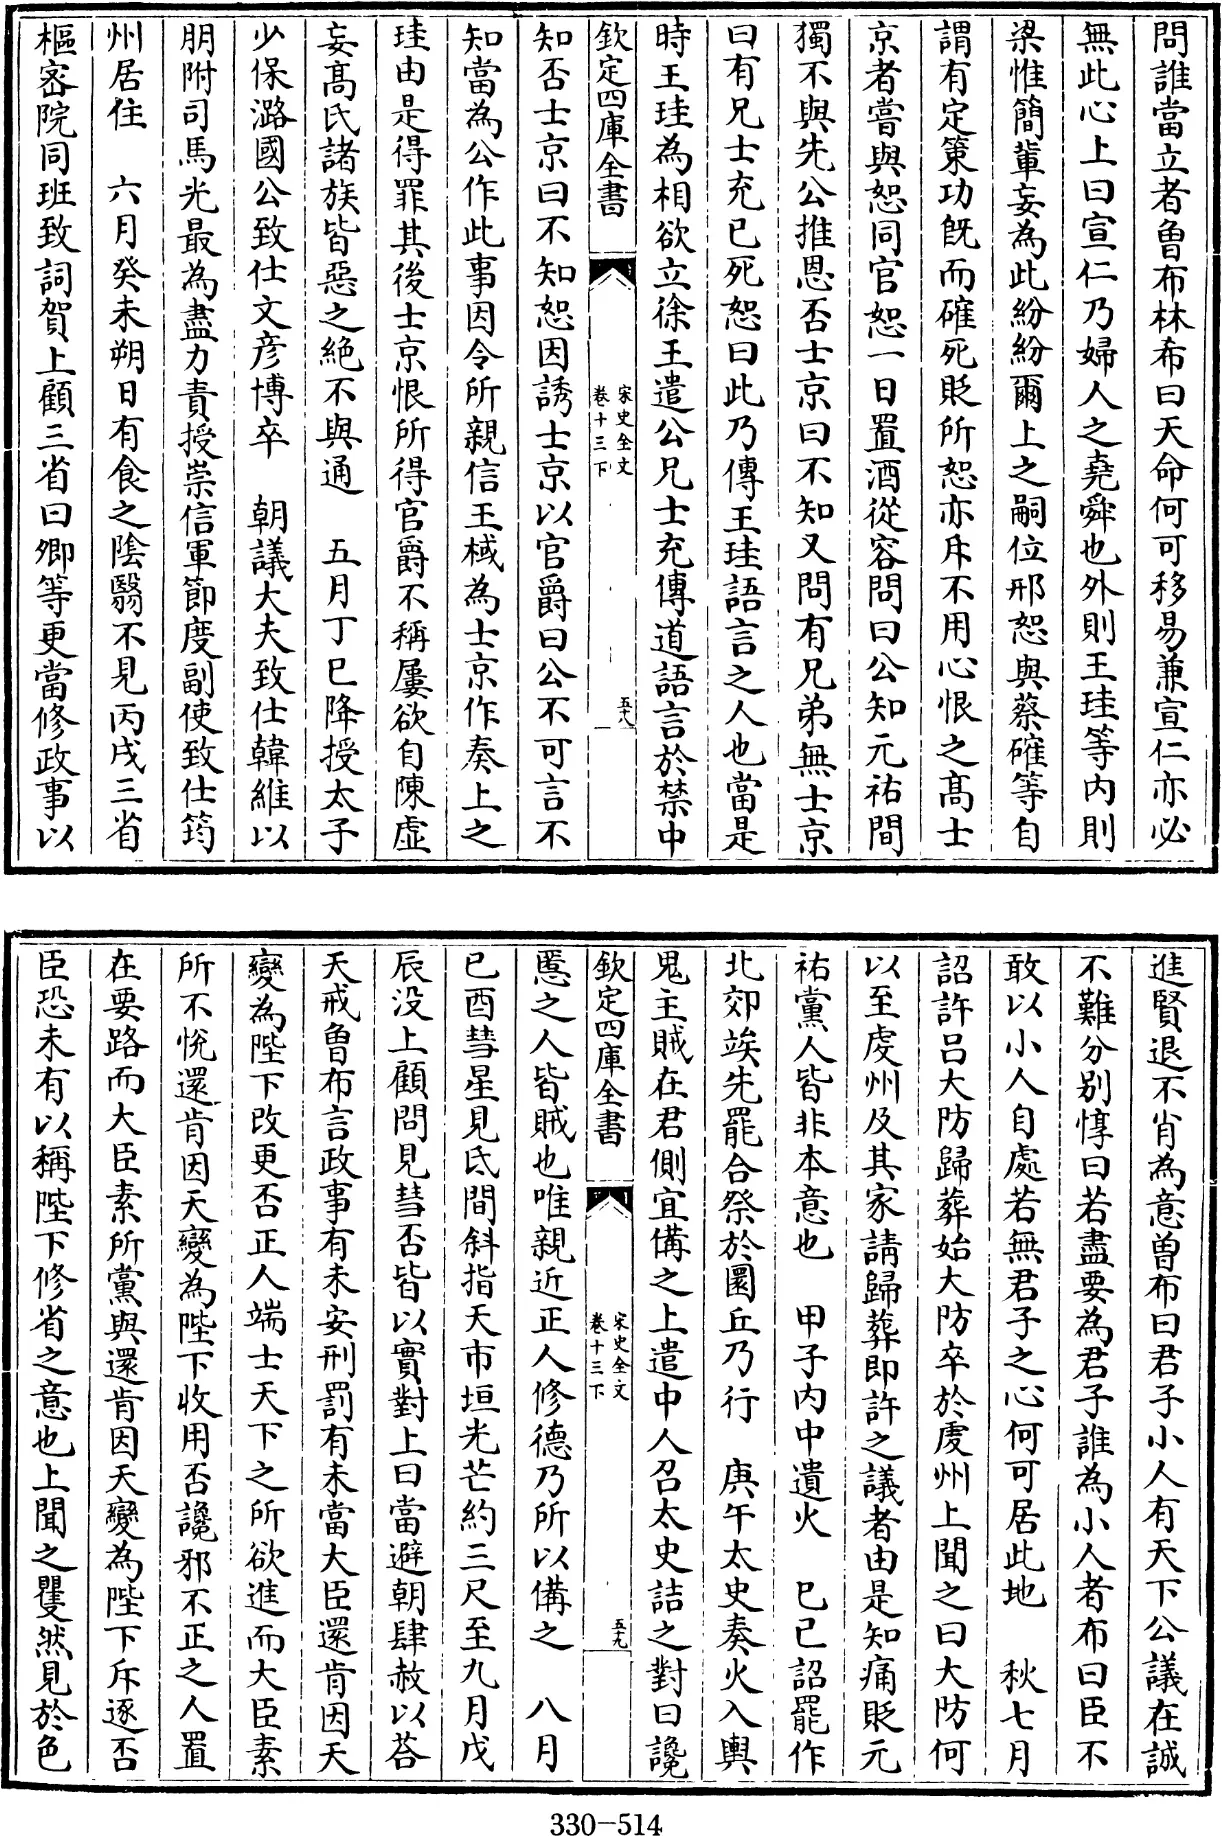 問誰當立者魯布林希曰天命何可移易兼宣仁亦必
無此心上曰宣仁乃婦人之堯舜也外則王珪等内則
梁惟簡輩妄為此紛紛爾上之嗣位邢恕與蔡確等自
謂有定策功既而確死貶所恕亦斥不用心恨之髙士
京者嘗與恕同官恕一日置酒從容問曰公知元祐間
獨不與先公推恩否士京曰不知又問有兄弟無士京
曰有兄士充已死恕曰此乃傳王珪語言之人也當是
時王珪為相欲立徐王遣公兄士充傳道語言於禁中
欽定四庫全書
宋史全文
卷十三下
五十八
知否士京曰不知恕因誘士京以官爵曰公不可言不
知當為公作此事因令所親信王棫為士京作奏上之
珪由是得罪其後士京恨所得官爵不稱屢欲自陳虚
妄髙氏諸族皆惡之絶不與通　五月丁巳降授太子
少保潞國公致仕文彦博卒　朝議大夫致仕韓維以
朋附司馬光最為盡力責授崇信軍節度副使致仕筠
州居住　六月癸未朔日有食之隂翳不見丙戌三省
樞宻院同班致詞賀上顧三省曰卿等更當修政事以
進賢退不肖為意曽布曰君子小人有天下公議在誠
不難分别惇曰若盡要為君子誰為小人者布曰臣不
敢以小人自處若無君子之心何可居此地　秋七月
詔許吕大防歸葬始大防卒於䖍州上聞之曰大防何
以至䖍州及其家請歸葬即許之議者由是知痛貶元
祐黨人皆非本意也　甲子内中遺火　己巳詔罷作
北郊竢先罷合祭於圜丘乃行　庚午太史奏火入輿
鬼主賊在君側宜備之上遣中人召太史詰之對曰讒
欽定四庫全書
宋史全文
卷十三下
五十九
慝之人皆賊也唯親近正人修德乃所以備之　八月
已酉彗星見氐間斜指天市垣光芒約三尺至九月戊
辰没上顧問見彗否皆以實對上曰當避朝肆赦以荅
天戒魯布言政事有未安刑罰有未當大臣還肯因天
變為陛下改更否正人端士天下之所欲進而大臣素
所不恱還肯因天變為陛下收用否讒邪不正之人置
在要路而大臣素所黨與還肯因天變為陛下斥逐否
臣恐未有以稱陛下修省之意也上聞之矍然見於色
330-514